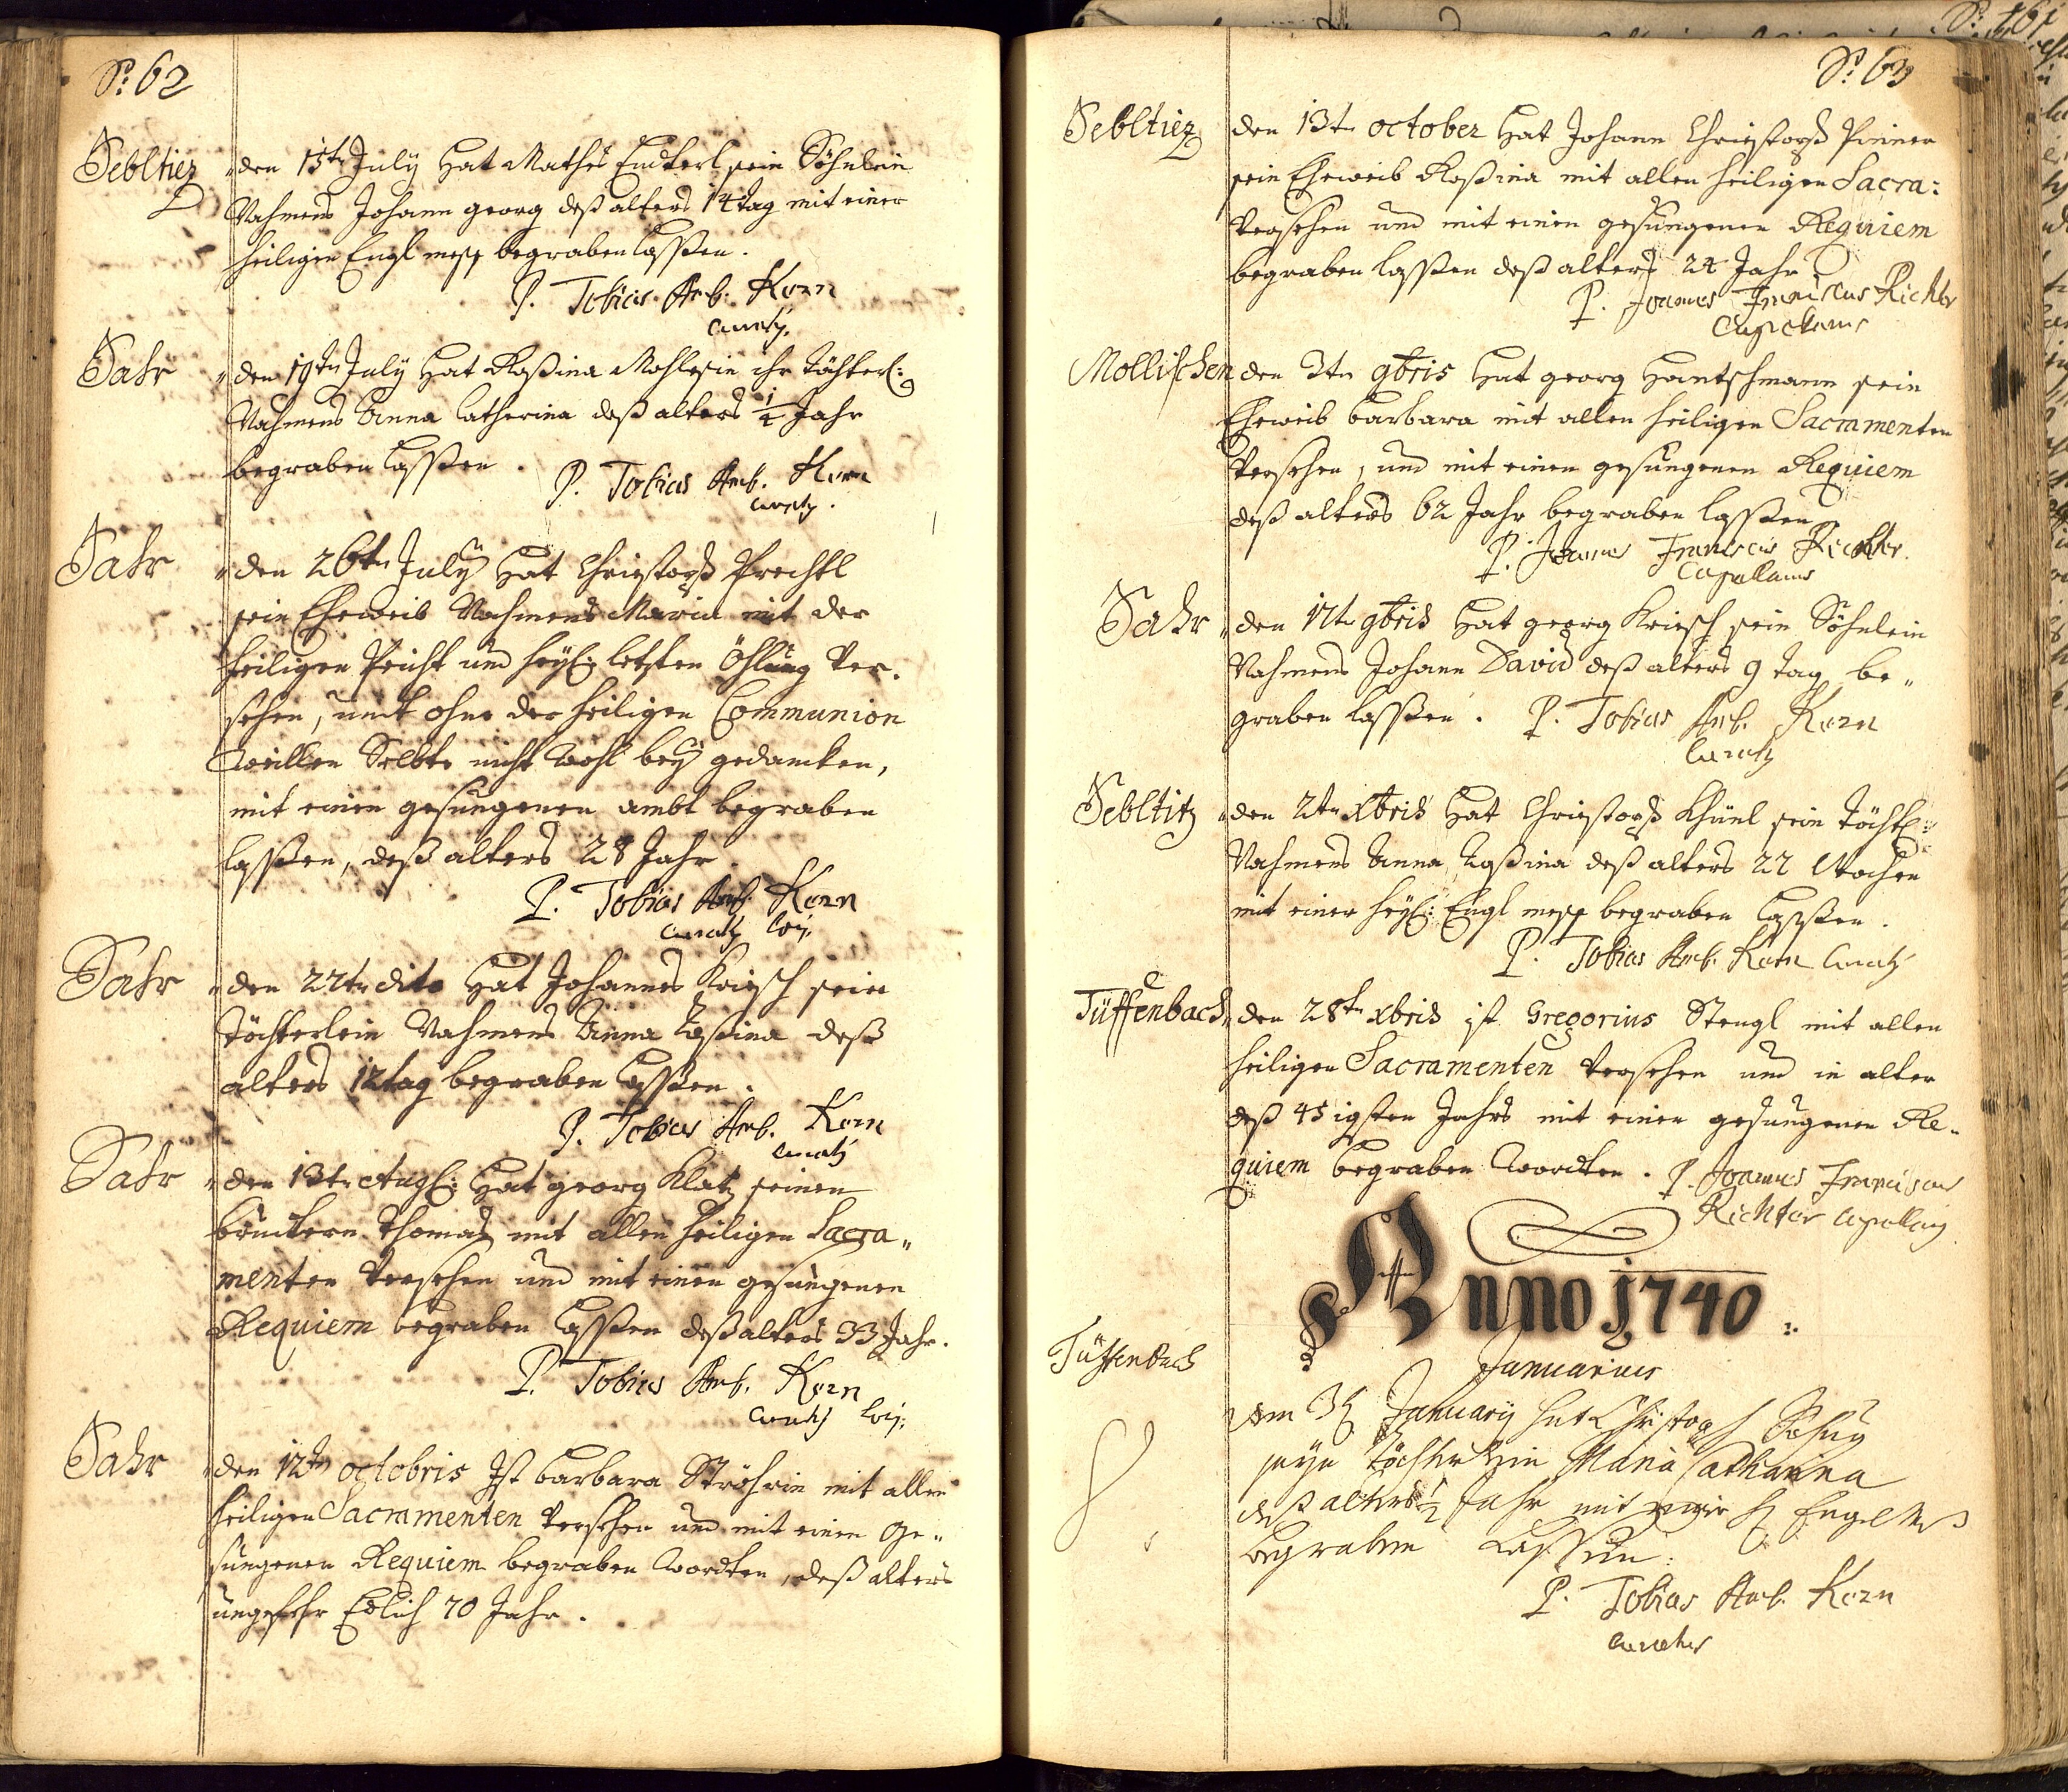 S: 62
Sebltiez
den 15tn July Hat Mathes Endterl sein Söhnlein
Nahmens Johann georg deß alters 14 tag mit einer
heiligen Engl mess begraben lassen.
P. Tobias Amb: Korn
Curatq.
Sahr
den 19tn July Hat Rosina Mohlesin ihr töchterl:
Nahmens Anna Catherina deß alters 1/4 Jahr
begraben lassen.
P. Tobias Amb. Korn
Curatq.
Sahr
den 26tn July Hat Christoph Prechtl
sein Eheweib Nahmens Maria mit der
heiligen Peicht und heyl: letsten Öhlung Ver.
sehen, undt ohne der heiligen Communion
weillen Selbte nicht wohl bey gedancken,
mit einen gesungenen ambt begraben
lassen, deß alters 28 Jahr.
P. Tobias Amb. Korn
Curatq loci.
Sahr
den 22tn dito Hat Johannes Kriesch sein
töchterlein Nahmens Anna Rosina deß
alters 12 tag begraben lassen.
P. Tobias Amb. Korn
Curatq
Sahr
den 13tn Aug: Hat georg Klatz seinen
brudern Thomas mit allen heiligen Sacra„
menten Versehen und mit einen gesungenen
Requiem begraben lassen deß alters 33 Jahr.
P. Tobias Amb. Korn
Curatq loci:
Sahr
den 12tn octobris Ist barbara Ströhrin mit allen
heiligen Sacramenten Versehen und mit einen ge„
sungenen Requiem begraben wordten, deß alters
ungefehr Etlich 70 Jahr.
S: 63
Sebltiez
den 13tn october Hat Johann Christoph Pinner
sein Eheweib Rosina mit allen heiligen Sacra:
Versehen und mit einen gesungenen Requiem
begraben lassen deß alters 24 Jahr.
P. Joannes Franciscus Richter
Capellanus
Mollischen
den 3tn 9bris Hat georg Hantschmann sein
Eheweib barbara mit allen heiligen Sacramenten
Versehen, und mit einen gesungenen Requiem
deß alters 62 Jahr begraben lassen
P. Joannes Franciscus Richter.
Capellanus
Sahr
den 17tn 9bris Hat georg Kriesch sein Söhnlein
Nahmens Johann David deß alters 9 tag be„
graben lassen. P. Tobias Amb. Korn
Curatq
Sebltitz
den 2tn Xbris Hat Christoph Khünl sein töchtl:
Nahmens Anna Rosina deß alters 22 Wochen
mit einer heyl: Engl mess begraben lassen.
P. Tobias Amb. Korn Curatq
Tüffenbach
den 28tn Xbris ist Gregorius Stengl mit allen
heiligen Sacramenten Versehen und in alter
deß 45igsten Jahrs mit einen gesungenen Re„
quiem begraben wordten. P. Joannes Franciscus
Richter Capellanq
Anno 1740.
Januarius
Tüffenbach
Januarÿ hat Christoph
seyn töchterlein Maria Catharina
deß alters 1/2 Jahr mit einer Engel Meß
begraben lassen:
P. Tobias Amb. Korn
Curatus